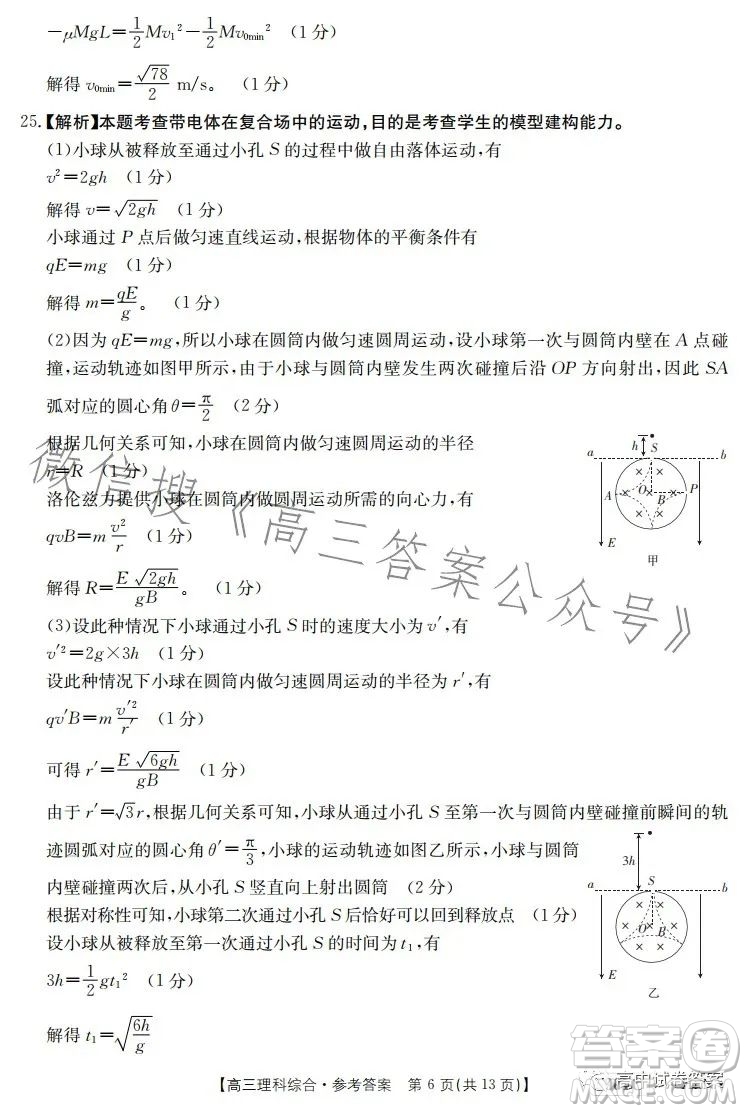 −μMgL=1/2 Mv₁²−1/2 Mv₀ₘᵢₙ² (1分)
解得 v₀ₘᵢₙ=√78/2 m/s。 (1分)
25.【解析】本题考查带电体在复合场中的运动,目的是考查学生的模型建构能力。
(1)小球从被释放至通过小孔 S 的过程中做自由落体运动,有
v²=2gh (1分)
解得 v=√(2gh) (1分)
小球通过 P 点后做匀速直线运动,根据物体的平衡条件有
qE=mg (1分)
解得 m=qE/g。 (1分)
(2)因为 qE=mg,所以小球在圆筒内做匀速圆周运动,设小球第一次与圆筒内壁在 A 点碰
撞,运动轨迹如图甲所示,由于小球与圆筒内壁发生两次碰撞后沿 OP 方向射出,因此 SA
弧对应的圆心角 θ=π/2 (2分)
根据几何关系可知,小球在圆筒内做匀速圆周运动的半径
r=R (1分)
洛伦兹力提供小球在圆筒内做圆周运动所需的向心力,有
qvB=m v²/r (1分)
解得 R=E√(2gh)/gB。 (1分)
h
S
a
b
A
O
B
P
E
甲
(3)设此种情况下小球通过小孔 S 时的速度大小为 v′,有
v′²=2g×3h (1分)
设此种情况下小球在圆筒内做匀速圆周运动的半径为 r′,有
qv′B=m v′²/r′ (1分)
可得 r′=E√(6gh)/gB (1分)
由于 r′=√3r,根据几何关系可知,小球从通过小孔 S 至第一次与圆筒内壁碰撞前瞬间的轨
迹圆弧对应的圆心角 θ′=π/3,小球的运动轨迹如图乙所示,小球与圆筒
内壁碰撞两次后,从小孔 S 竖直向上射出圆筒 (2分)
根据对称性可知,小球第二次通过小孔 S 后恰好可以回到释放点 (1分)
设小球从被释放至第一次通过小孔 S 的时间为 t₁,有
3h=1/2 gt₁² (1分)
解得 t₁=√(6h/g)
3h
S
a
b
O
B
E
乙
【高三理科综合·参考答案 第 6 页(共 13 页)】
微信搜《高三答案公众号》
答案圈
高中试卷答案